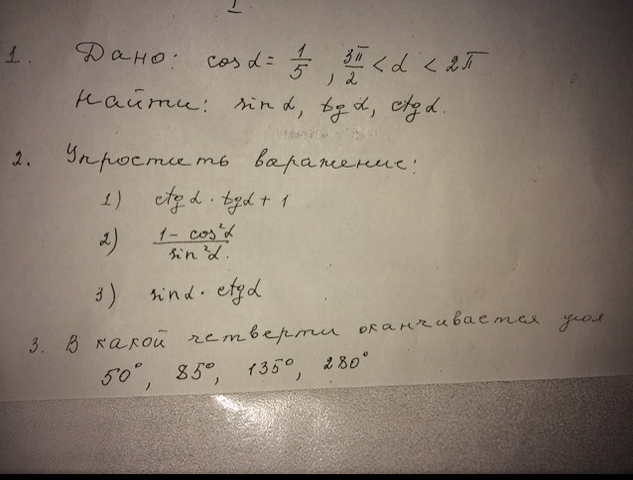 I
1. Дано: cos α = 1/5, 3π/2 < α < 2π
Найти: sin α, tg α, ctg α.
2. Упростить варажение:
1) ctg α · tg α + 1
2) 1 - cos²α / sin²α.
3) sin α · ctg α
3. В какой четверти оканчивается угол
50°, 85°, 135°, 280°